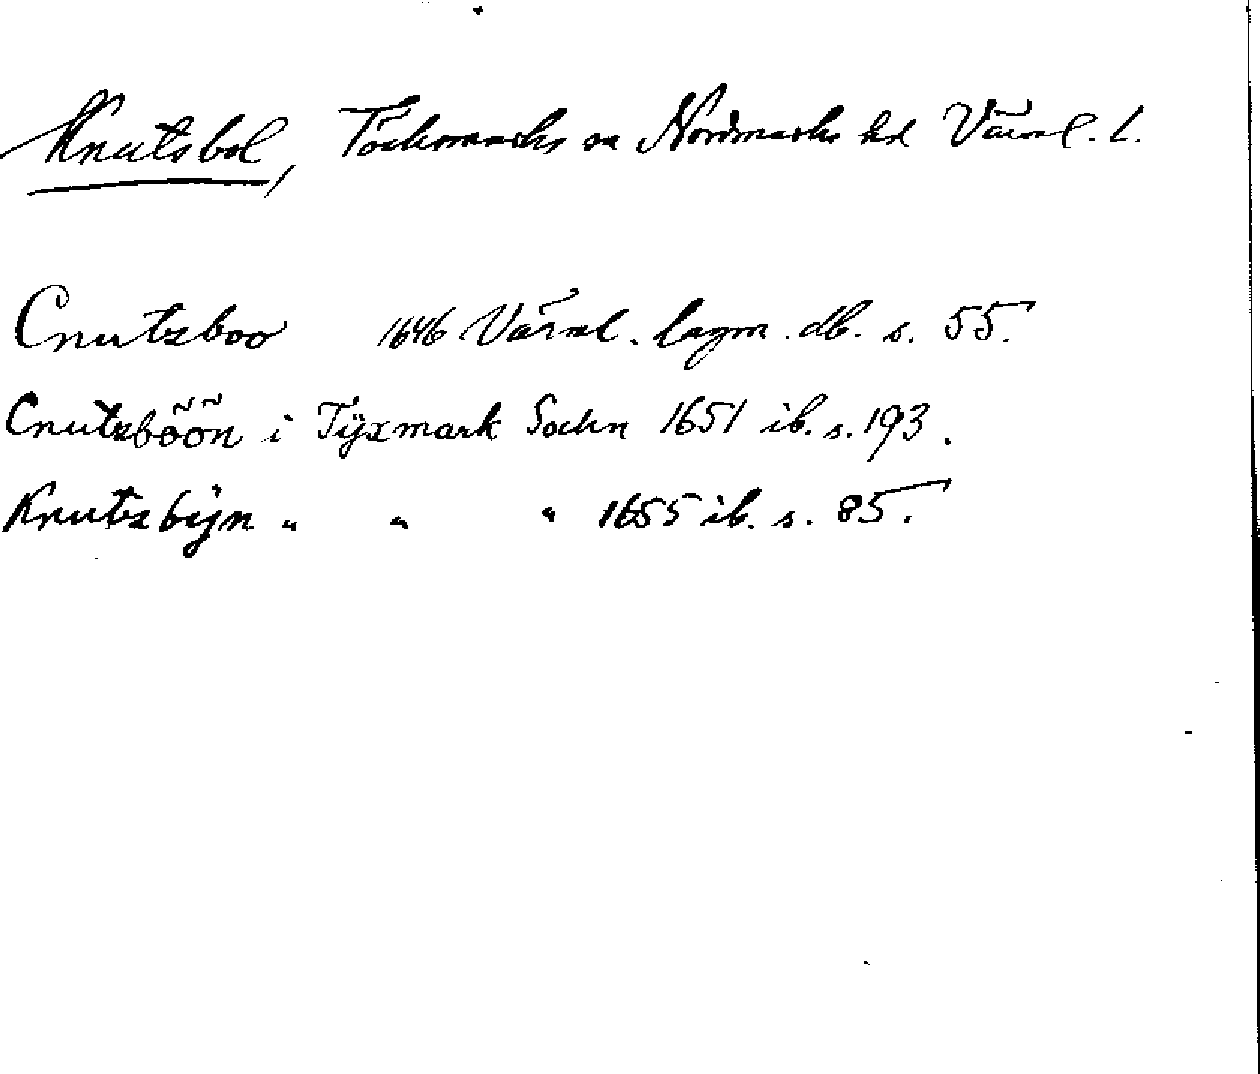 Knutsbol, Töckmarks sn Nordmarks hd Värml. l.
Cnutzboo 1646 Värml. lagm. db. s. 55.
Cnutzböön i Tÿxmark Sochn 1651 ib. s. 193.
Knutzbÿn " " " 1655 ib. s. 85.